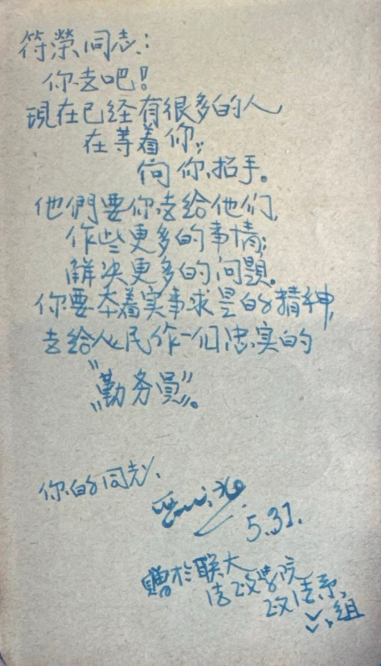 符榮同志:
你去吧!
現在已经有很多的人
在等着你,
向你招手。
他們要你去给他们,
作些更多的事情;
解决更多的问题。
你要本着实事求是的精神,
去给人民作一们忠实的
"勤务員"。
你的同志,
5.31.
贈於联大
法政学院
政法系,
组